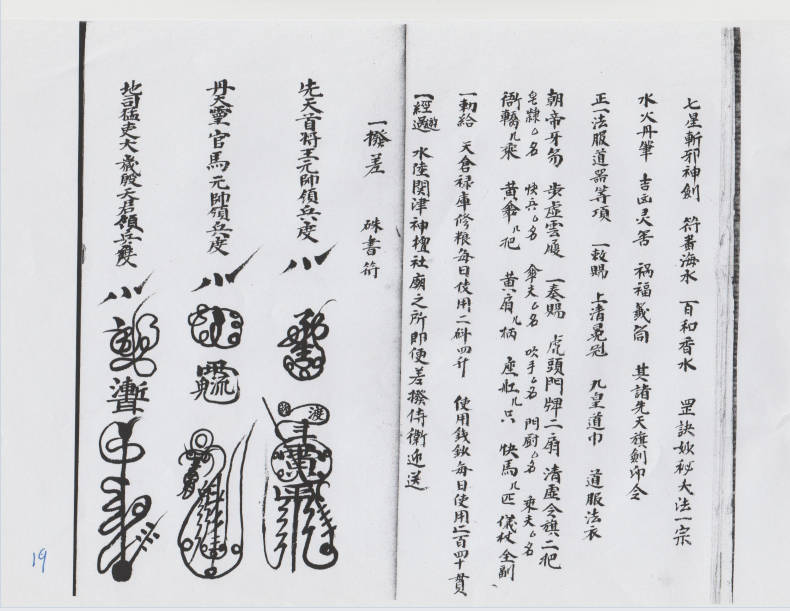 七星斬邪神劍　符書海水　百和香水　罡訣妙秘大法一宗
水火丹筆　吉凶灵筶　禍福籤筒　其諸先天旗劍印令
正一法服道器等項　一敕賜　上清冕　九皇道巾　道服法衣
朝帝牙笏　步虛雲履　一奏賜　虎頭門牌二扇　清虛令旗二把
皂隸ム名　快兵ム名　傘夫ム名　吹手ム名　門厨ム名　乘夫ム名
轎几乘　黃傘几把　黃扇几柄　座几只　快馬几匹　儀杖全副
一勅給　天倉禄庫修粮每日使用二斗四升　使用錢鈔每日使用二百四十貫
一經過　水陸関津神壇社廟之所即便差撥侍衛迎送
一撥差　硃書符
先天首將王元帥領兵度
丹天靈官馬元帥領兵度
地司猛吏大歲殷天君領兵度
19